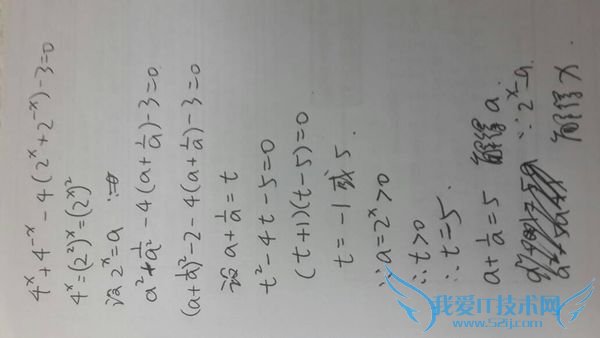 4^x+4^{-x}-4(2^x+2^{-x})-3=0
4^x=(2^2)^x=(2^x)^2
设2^x=a
a^2+\frac{1}{a^2}-4(a+\frac{1}{a})-3=0
(a+\frac{1}{a})^2-2-4(a+\frac{1}{a})-3=0
设a+\frac{1}{a}=t
t^2-4t-5=0
(t+1)(t-5)=0
t=-1或5.
∵a=2^x>0
∴t>0
∴t=5.
a+\frac{1}{a}=5 解得a.
∵2^x=a
解得x.
我爱IT技术网
www.52ij.com